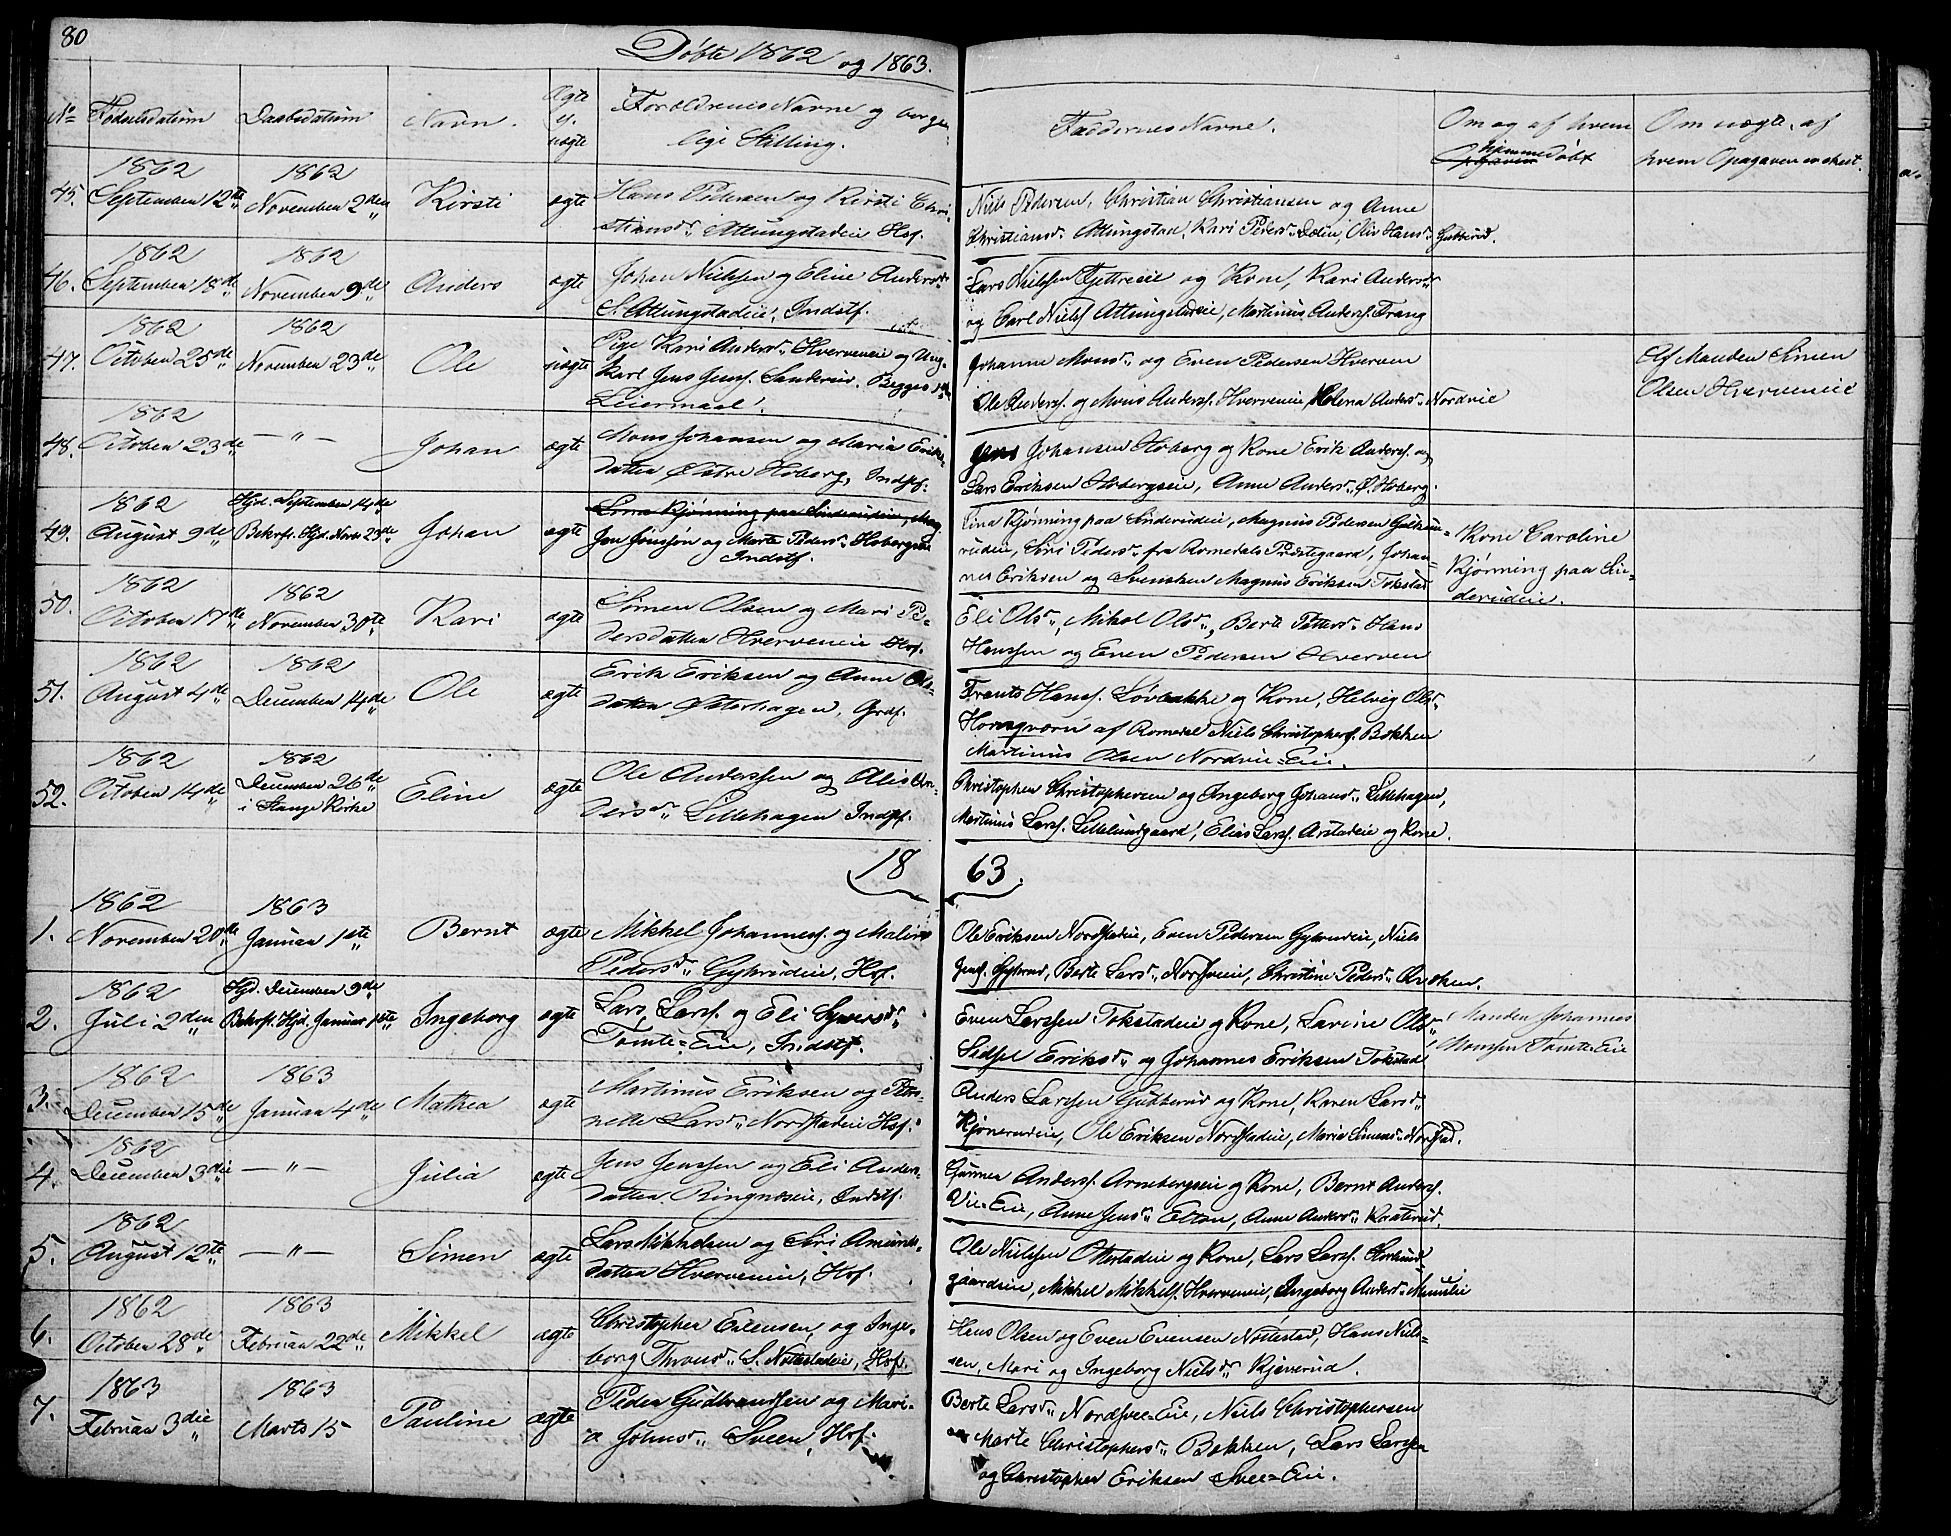 80
Døbte 1862 og 1863.
No Fødselsdatum Daabsdatum Navn. Ægte el. uægte Forældrenes Navne og borgerlige Stilling. Faddernes Navne. Om og af hvem hjemmedøbt Om uægte, af hvem Opgaven er skeet.
45. 1862 September 12te 1862 November 2den Kirsti ægte Hans Pedersen og Kirsti Chri-
stiansdr. Attungstadeie Hsf.
Niels Pedersen, Christian Christiansen og Anne
Christiansdr. Attungstad, Kari Pedersdr. Dælin, Oliv Hansdr. Gubberud.
46. 1862 September 18de 1862 November 9de Anders ægte Johan Nielssen og Eline Andersdr.
S. Attungstadeie, Indstf.
Lars Nielssen Tjettreeie og Kone, Kari Andersdr.
og Carl Nielsf. Attungstadeie, Martinus Andersf. Frang
47. 1862 October 25de 1862 November 23de Ole uægte Pige Kari Andersdr. Hverveneie og Ung-
karl Jens Jensf. Sanderud. Begges 1ste
Leiermaal.
Johanne Monsdr. og Even Pedersen Hverven
Ole Andersf. og Mons Andersf. Hverveneie, Helena Andersdr. Nordvie
Af Manden Simen
Olsen Hverveneie
48. 1862 October 23de — " — Johan ægte Mons Johansen og Maria Eriks-
datter Østre Hoberg, Indstf.
Jens Johansen Hoberg og Kone Erik Andersf. og
Lars Eriksen Hobergseie, Anne Andersdr. Ø. Hoberg.
49. 1862 August 9de Hjd. September 14de Bekrft. Hjd. Novr. 23de Johan ægte
Jon Jonsson og Marte Pedersdr. Hobergseie
Indstf.
Lina Kjønning paa Sinderudeie, Magnus Pedersen
rudeie, Siri Pedersdr. fra Romedals Præstegaard, Johan-
nes Eriksen og Svensken Magnus Eriksen Tokstad
Kone Caroline
Kjønning paa Sin-
derudeie.
50. 1862 October 17de 1862 November 30te Kari ægte Simen Olsen og Mari Pe-
dersdatter Hverveneie Hsf.
Eli Olsdr., Mikel Olsdr., Berte Pettersdr. Hans
Hanssen og Even Pedersen Hverven
51. 1862 August 4de 1862 December 14de Ole ægte Erik Eriksen og Anne Ols-
datter Østerhagen, Grdf.
Frants Hansf. Løvbakke og Kone, Helvig Olsdr.
Hornsqværn af Romedal Niels Christophersf. Bakken
Martinus Olsen Nordvie-Eie.
52. 1862 October 14de 1862 December 26de i Stange Kirke Eline ægte Ole Anderssen og Olia An-
dersdr. Lillehagen Indstf.
Christopher Christophersen og Ingeborg Johansdr. Lillehagen,
Martinus Larsf. Lillelundgaard, Elias Larsf. Arstadeie og Kone.
18 63.
1. 1862 November 20de 1863 Januar 1ste Bernt ægte Mikkel Johannesf. og Maline
Pedersdr. Gykrudeie, Hsf.
Ole Eriksen Nordstadeie, Even Pedersen Gykrudeie, Niels
Jensf. Gykrud, Berte Larsdr. Nordsveeie, Christine Pedersdr.
2. 1862 Juli 2den Hjd. December 9de Bekrft. Hjd. Januar 1ste Ingeborg ægte Lars Larsf. og Eli Syversdr.
Tomte-Eie, Indstf.
Even Larssen Tokstadeie og Kone, Larine Olsdr.
Sidsel Eriksdr. og Johannes Eriksen Tokstad
Manden Johannes
Monsen Tomte-Eie
3. 1862 December 15de 1863 Januar 4de Mathea ægte Martinus Eriksen og Peter-
nelle Larsdr. Nordstadeie Hsf.
Anders Larssen Gubberud og Kone, Karen Larsdr.
Kjønerudeie, Ole Eriksen Nordstadeie, Marie Simensdr. Nordstad.
4. 1862 December 3die — " — Julia ægte Jens Jenssen og Eli Anders-
datter Ringneseie, Indstf.
Gunner Andersf. Arnebergseie og Kone, Bernt Andersf.
Vie-Eie, Anne Jensdr. Elton, Anne Andersdr. Kraterud.
5. 1862 August 12te — " — Simen ægte Lars Mikkelsen og Siri Amunds-
datter Hverveneie, Hsf.
Ole Nielssen Ottestadeie og Kone, Lars Larsf.
gaardeie, Mikkel Mikkelsf. Hverveneie, Ingeborg Andersdr.
6. 1862 October 28de 1863 Februar 22de Mikkel ægte Christopher Evensen og Inge-
borg Thronsdr. S. Nøttestadeie, Hsf.
Hans Olsen og Even Evensen Nøttestad, Hans Niels-
sen, Mari og Ingeborg Nielsdr. Kjeverud.
7. 1863 Februar 3die 1863 Marts 15 Pauline ægte Peder Gudbrandsen og Mari-
a Johnsdr. Sveen, Hsf.
Berte Larsdr. Nordsvee-Eie, Niels Christophersen
Marte Christophersdr. Bakken, Lars Larsen
og Christopher Eriksen Svee-Eie.